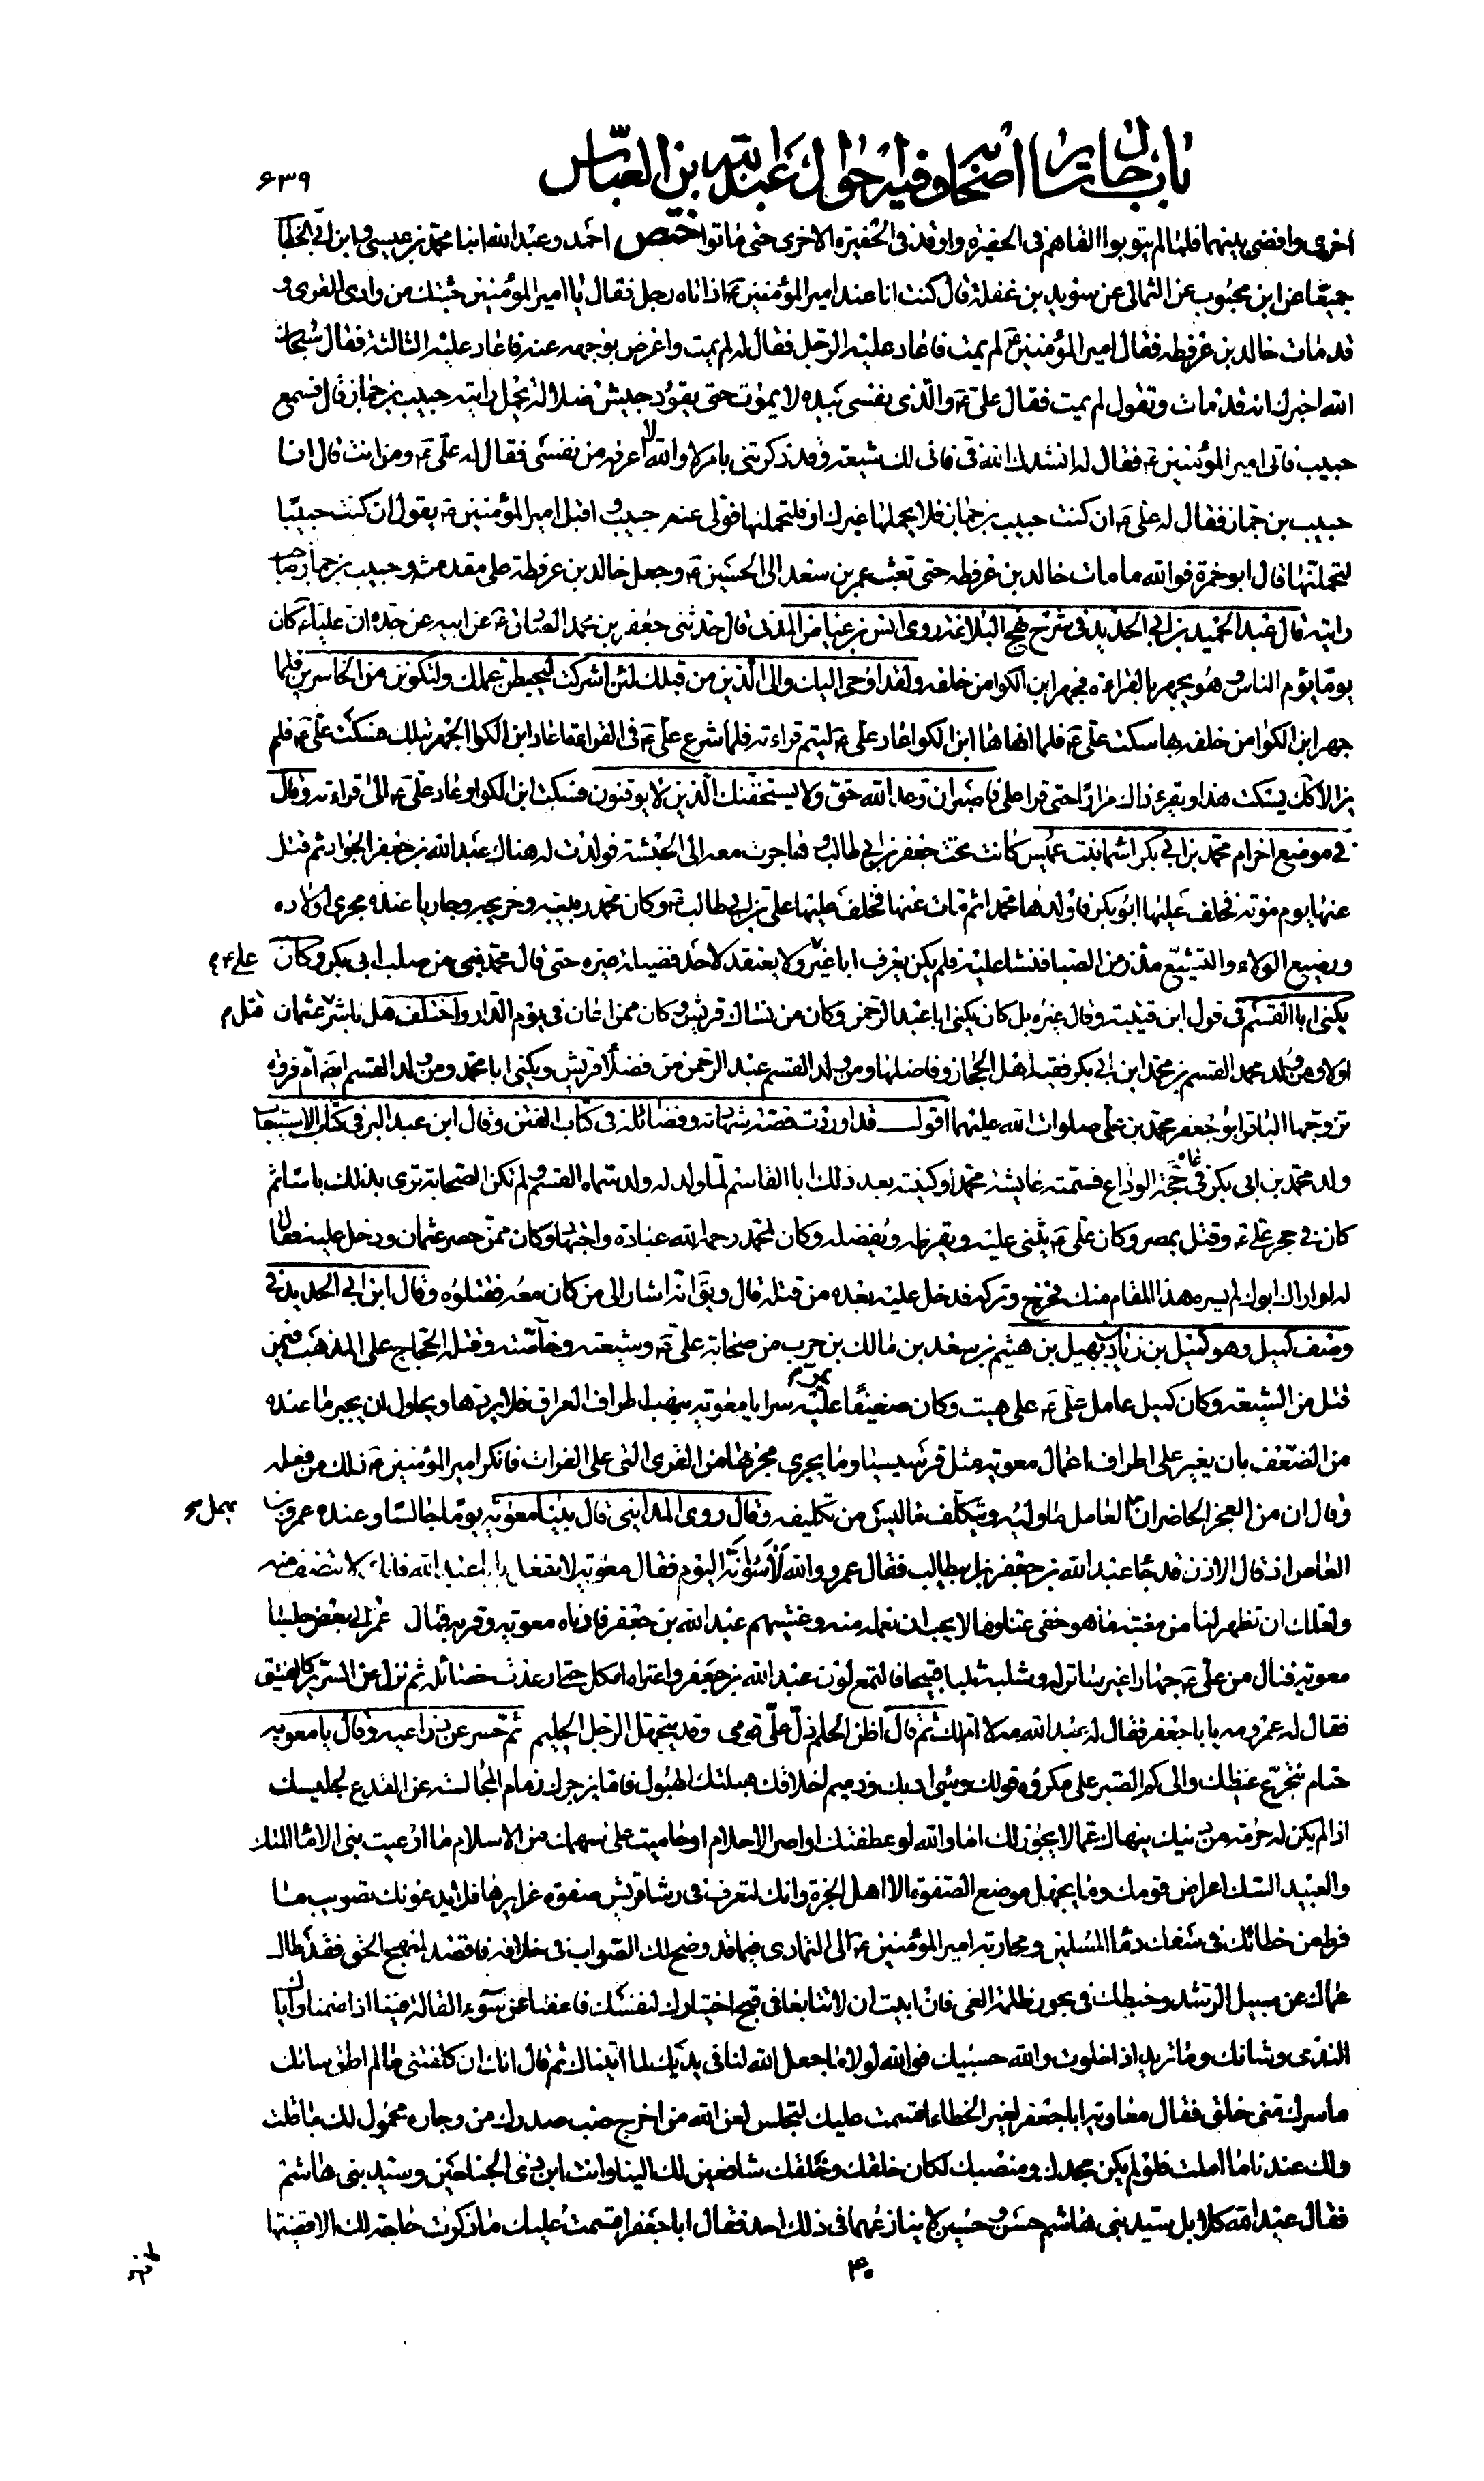 باب حال سائر اصحابه وفيه احوال عبد الله بن العباس
۶۳۹
اخرى وافضى بينهما فلما لم يتوبوا القاهم فى الحفيرة واوقد فى الحفيرة الاخرى حتى ماتوا ختص احمد وعبد الله ابنا محمد بن عيسى وابن ابى الخطاب
جميعا عن ابن محبوب عن الثمالى عن سويد بن غفلة قال كنت انا عند امير المؤمنين ع اذ اتاه رجل فقال يا امير المؤمنين جئتك من وادى القرى و
قد مات خالد بن عرفطه فقال امير المؤمنين ع لم يمت فاعاد عليه الرجل فقال له لم يمت واعرض بوجهه عنه فاعاد عليه الثالثة فقال سبحان
الله اخبرك انه قد مات وتقول لم يمت فقال على ع والذى نفسى بيده لا يموت حتى يقود جيش ضلالة يحمل رايته حبيب بن جماز قال فسمع
حبيب فاتى امير المؤمنين ع فقال له انشدك الله فىّ فانى لك شيعة وقد ذكرتنى بامر لا والله لا اعرفه من نفسى فقال له على ع ومن انت قال انا
حبيب بن جماز فقال له على ع ان كنت حبيب بن جماز فلا يحملها غيرك او فلتحملنها فولى عنه حبيب واقبل امير المؤمنين ع يقول ان كنت حبيبا
لتحملنها قال ابو حمزة فوالله ما مات خالد بن عرفطه حتى بعث عمر بن سعد الى الحسين ع وجعل خالد بن عرفطة على مقدمته وحبيب بن جماز صاحب
رايته قال عبد الحميد بن ابى الحديد فى شرح نهج البلاغة روى انس بن عياض المدنى قال حدثنى جعفر بن محمد الصادق ع عن ابيه عن جده ان عليا ع كان
يوما يؤم الناس وهو يجهر بالقراءة فجهر ابن الكوا من خلفه ولقد اوحى اليك والى الذين من قبلك لئن اشركت ليحبطن عملك ولتكونن من الخاسرين فلما
جهر ابن الكوا من خلفه بها سكت على ع فلما انهاها ابن الكوا عاد على ع ليتم قراءته فلما شرع على ع فى القراءة اعاد ابن الكوا الجهر بتلك فسكت على ع فلم
يزالا كك يسكت هذا ويقرء ذاك مرارا حتى قرا على فاصبر ان وعد الله حق ولا يستخفنك الذين لا يوقنون فسكت ابن الكوا وعاد على ع الى قراءته وقال
فى موضع اخر ام محمد بن ابى بكر اسما بنت عميس كانت تحت جعفر بن ابى طالب وهاجرت معه الى الحبشة فولدت له هناك عبد الله بن جعفر الجواد ثم قتل
عنها يوم موته فخلف عليها ابو بكر فاولدها محمدا ثم مات عنها فخلف عليها على بن ابى طالب ع وكان محمد ربيبه وخريجه وجاريا عنده مجرى اولاده
ورضيع الولاء والتشيع مذ زمن الصبا فنشا عليه فلم يكن يعرف ابا غير ولا يعتقد لاحد فضيلة غيره حتى قال محمد ابنى من صلب ابى بكر وكان
على ع م
يكنى ابا القسم فى قول ابن قتيبة وقال غيره بل كان يكنى ابا عبد الرحمن وكان من نساك قريش وكان ممن اعان فى يوم الدار واختلف هل باشر عثمان
قتل م
او لا ومن ولد محمد القسم بن محمد ابن ابى بكر فقيه اهل الحجاز وفاضلها ومن ولد القسم عبد الرحمن من فضلا قريش ويكنى ابا محمد ومن ولد القسم ايضا ام فروة
تزوجها الباقر ابو جعفر محمد بن على صلوات الله عليهما اقول قد اوردت قصة شهادته وفضائله فى كتاب الفتن وقال ابن عبد البر فى كتاب الاستيعاب
ولد محمد بن ابى بكر فى عام حجة الوداع فسمته عايشة محمدا وكنيته بعد ذلك ابا القاسم لما ولد له ولد سماه القسم ولم تكن الصحابة ترى بذلك باسا ثم
كان فى حجر على ع وقتل بمصر وكان على ع يثنى عليه ويقرظه ويفضله وكان لمحمد رحمه الله عبادة واجتهاد وكان ممن حصر عثمان ودخل عليه فقال
له لو اراك ابوك لم يسره هذا المقام منك فخرج وتركه فدخل عليه بعده من قتله قال ويق انه اشار الى من كان معه فقتلوه وقال ابن ابى الحديد فى
وصف كميل وهو كميل بن زياد بن نهيل بن هيثم بن سعد بن مالك بن حرب من صحابة على ع وشيعته وخاصته وقتله الحجاج على المذهب فيمن
قتل من الشيعة وكان كميل عامل على ع على هيت وكان ضعيفا عليه سرايا معوية ينهب اطراف العراق فلا يردها ويحاول ان يجبر ما عنده
يمر م
من الضعف بان يغير على اطراف اعمال معوية مثل قرقيسيا وما يجرى مجراها من القرى التى على الفرات فانكر امير المؤمنين ع ذلك من فعله
وقال ان من العجز الحاضر ان العامل ما وليه ويتكلف ما ليس من تكليفه وقال روى المداينى قال بينا معوية يوما جالسا وعنده عمرو بن
يهمل م
العاص اذ قال الاذن قد جاء عبد الله بن جعفر بن ابيطالب فقال عمرو والله لاسوأنه اليوم فقال معوية لا تفعل يا ابا عبد الله فانك لا تنتصف منه
ولعلك ان تظهر لنا من مغبته ما هو خفى عنا وما لا يجب ان نعلمه منه وغشيهم عبد الله بن جعفر فادناه معوية وقربه فمال عمرو الى بعض جلسا
معوية فنال من على ع جهارا غير ساتر له وثلبه ثلبا قبيحا فالتمع لون عبد الله بن جعفر واعتراه افكل حتى ارعدت خصائله ثم نزل عن السرير كالفنيق
فقال له عمرو مه يا با جعفر فقال له عبد الله مه لا ام لك ثم قال اظن الحلم ذل على قومى وقد يتجهل الرجل الحليم ثم حسر عن ذراعيه وقال يا معوية
حتام نتجرع غيظك والى كم الصبر على مكروه قولك وسيئ ادبك وذميم اخلاقك هبلتك الهبول فاما يزجرك ذمام المجالسة عن القدع لجليسك
اذا لم يكن له حرمة من دينك ينهاك عما لا يجوز لك اما والله لو عطفتك اواصر الاحلام او حاميت على سهمك من الاسلام ما ارعيت بنى الاماء المتك
والعبيد السك اعراض قومك وما يجهل موضع الصفوة الا اهل الجرة وانك لتعرف فى رشا قريش صفوة غرايرها فلا يدعونك تصويب ما
فرط من خطائك فى سفك دماء المسلمين ومحاربة امير المؤمنين ع الى التمادى فيما قد وضح لك الصواب فى خلافه فاقصد لمنهج الحق فقد طال
عماك عن سبيل الرشد وخبطك فى بحور ظلمة الغى فان ابيت ان لا تتابعنا فى قبح اختيارك لنفسك فاعفنا عن سوء القالة فينا اذا ضمنا واياك
الندى وشانك وما تريد اذا خلوت والله حسيبك فوالله لولا ما جعل الله لنا فى يديك لما اتيناك ثم قال انك ان كلفتنى ما لم اطق ساءك
ما سرك منى خلق فقال معاوية ابا جعفر لغير الخطاء اقسمت عليك لتجلس لعن الله من اخرج ضب صدرك من وجاره محمول لك ما قلت
ولك عندنا ما املت فلو لم يكن مجدك ومنصبك لكان خلقك وخلقك شافعين لك الينا وانت ابن ذى الجناحين وسيد بنى هاشم
فقال عبد الله كلا بل سيد بنى هاشم حسن وحسين لا ينازعهما فى ذلك احد فقال ابا جعفر اقسمت عليك ما ذكرت حاجة لك الا قضيتها
۴۰